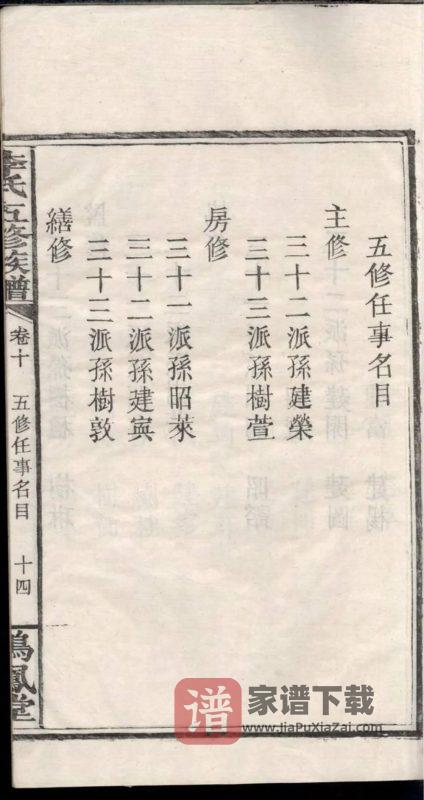 五修任事名目
主修
三十二派孫建榮
三十三派孫樹萱
房修
三十一派孫昭萊
三十二派孫建寅
三十三派孫樹敦
繕修
李氏五修族譜
卷十
五修任事名目
十四
鳴鳳堂
谱
家谱下载
www.jiaPuXiaZai.com